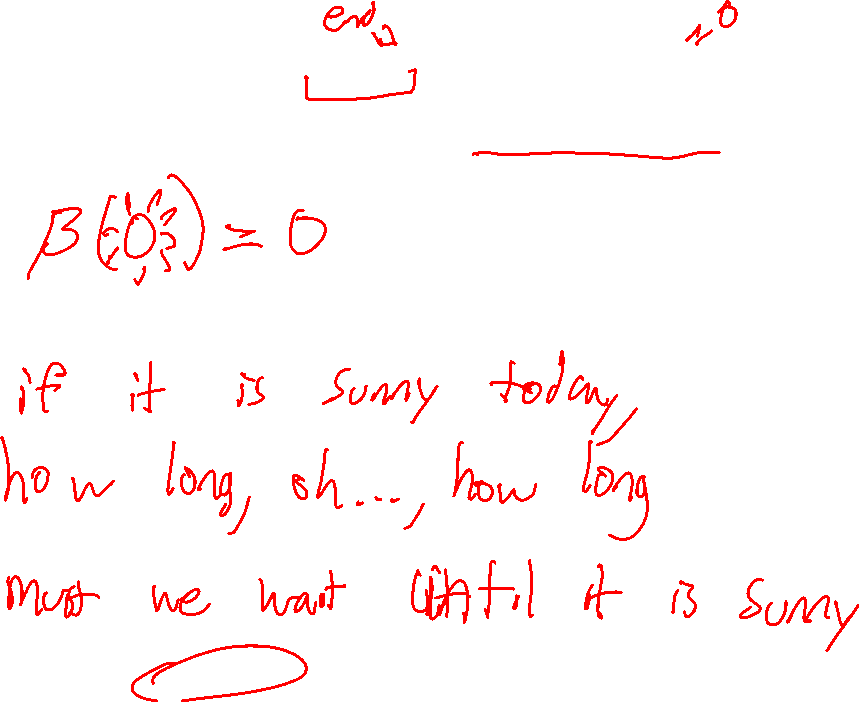 end
β(☀) = 0
if it is sunny today,
how long, oh..., how long
must we wait until it is sunny